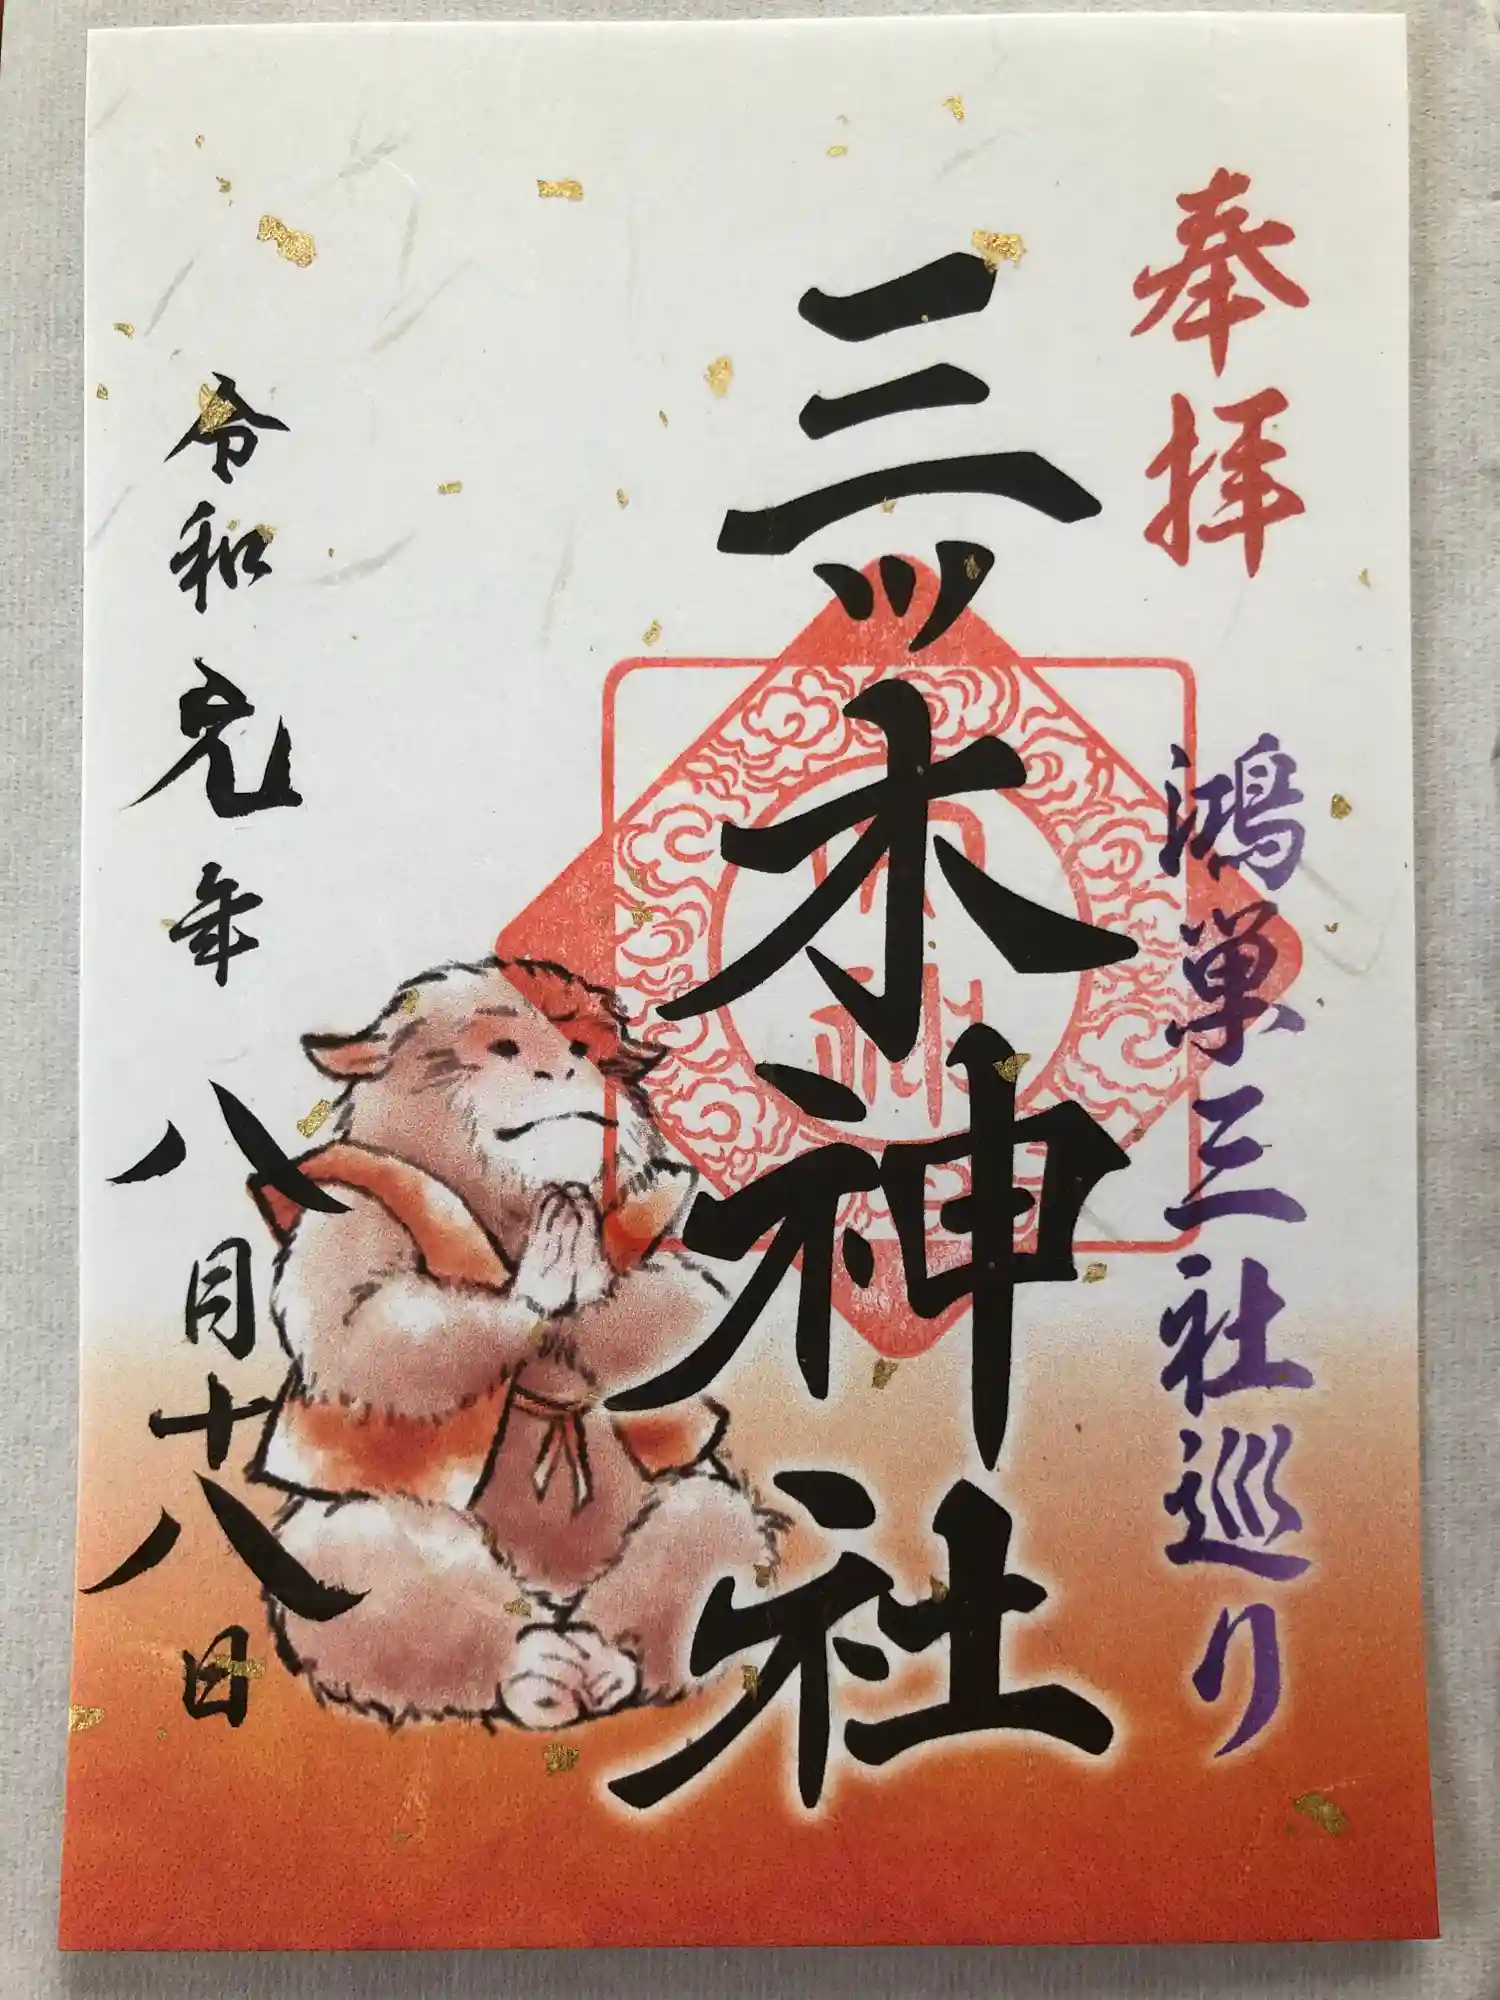 奉拝
鴻巣三社巡り
三ツ木神社
令和元年八月十八日